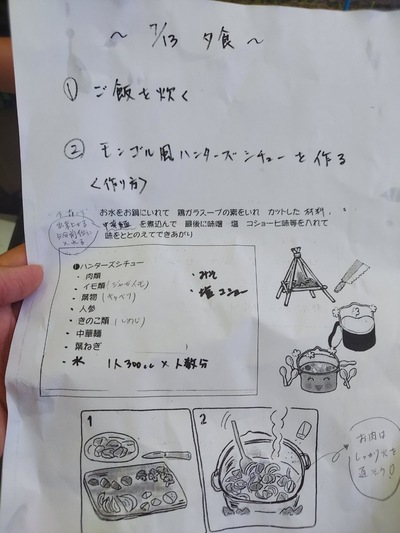 ～ 7/13 夕食 ～
① ご飯を炊く
② モンゴル風ハンターズシチューを作る
〈作り方〉
お水をお鍋にいれて 鶏ガラスープの素をいれ カットした 材料、
中華麺 を煮込んで 最後に味噌 塩 コショー七味等を入れて
味をととのえてできあがり
❶ハンターズシチュー
・肉類
・みそ
・イモ類(ジャガイモ)
・塩コショー
・葉物(キャベツ)
・人参
・きのこ類(しめじ)
・中華麺
・葉ねぎ
・水 1人300cc×人数分
1
2
お肉は
しっかり火を
通シテ!